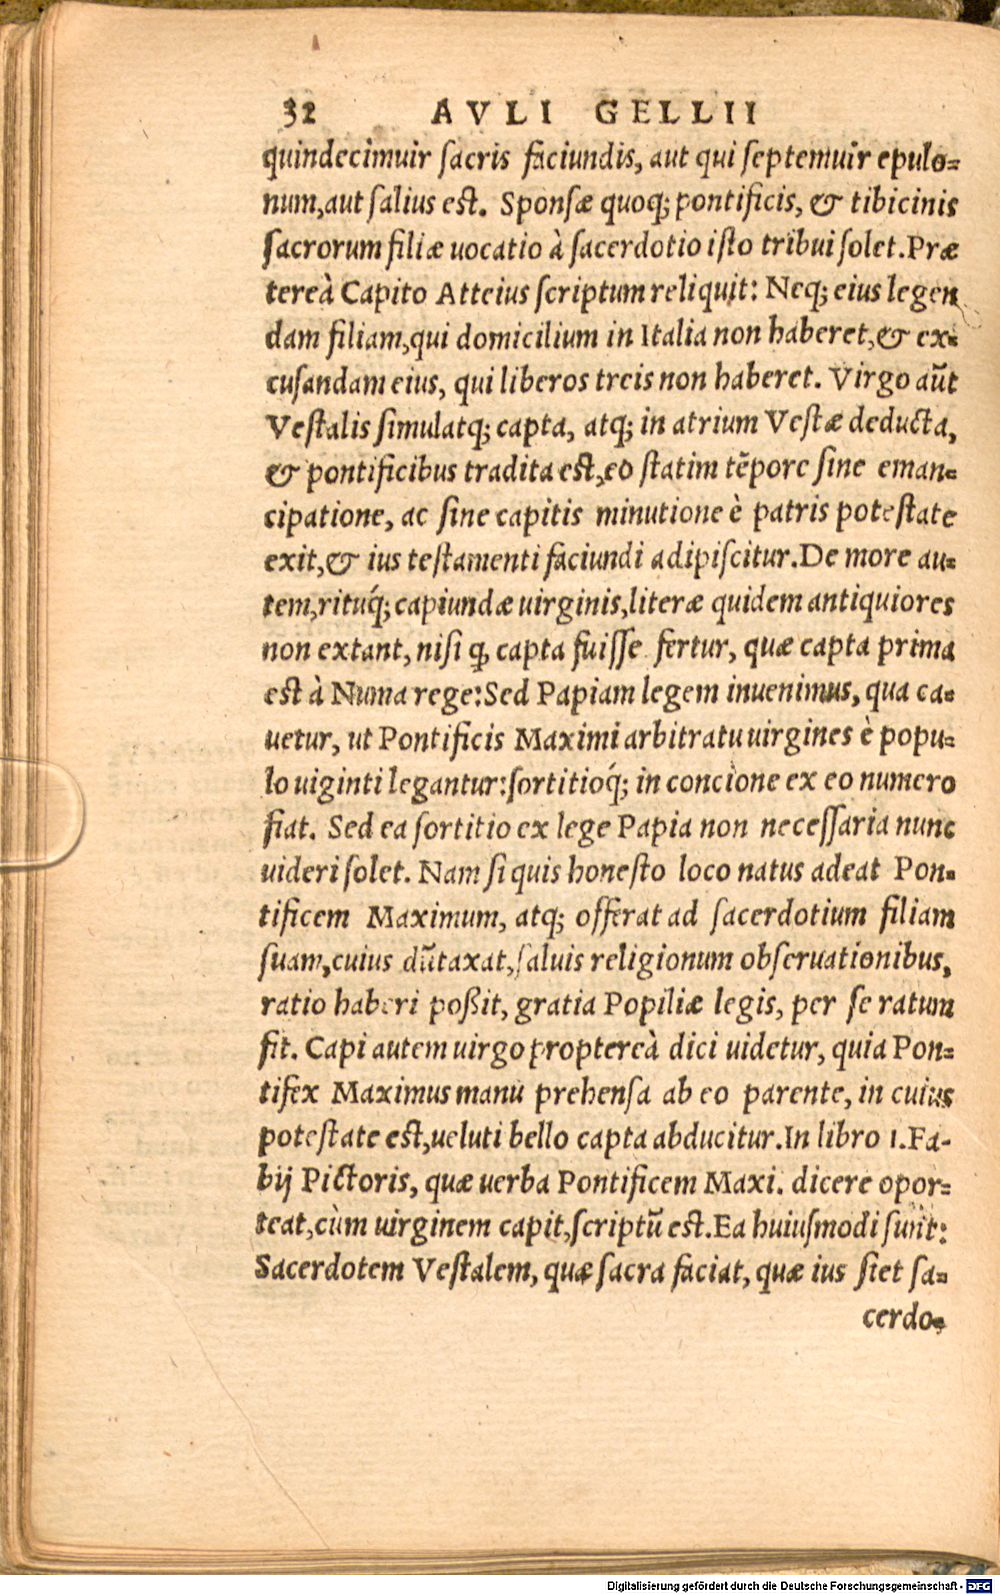 32 AVLI GELLII
quindecimuir sacris faciundis, aut qui septemuir epulo-
num, aut salius est. Sponsæ quoq; pontificis, & tibicinis
sacrorum filiæ uocatio à sacerdotio isto tribui solet. Præ
tereà Capito Atteius scriptum reliquit: Neq; eius legen
dam filiam, qui domicilium in Italia non haberet, & ex-
cusandam eius, qui liberos treis non haberet. Virgo aūt
Vestalis simulatq; capta, atq; in atrium Vestæ deducta,
& pontificibus tradita est, eo statim tēpore sine eman-
cipatione, ac sine capitis minutione è patris potestate
exit, & ius testamenti faciundi adipiscitur. De more au-
tem, rituq́; capiundæ uirginis, literæ quidem antiquiores
non extant, nisi q̱ capta fuisse fertur, quæ capta prima
est à Numa rege: Sed Papiam legem inuenimus, qua ca-
uetur, ut Pontificis Maximi arbitratu uirgines è popu-
lo uiginti legantur: sortitioq́; in concione ex eo numero
fiat. Sed ea sortitio ex lege Papia non necessaria nunc
uideri solet. Nam si quis honesto loco natus adeat Pon-
tificem Maximum, atq; offerat ad sacerdotium filiam
suam, cuius dūtaxat, saluis religionum obseruationibus,
ratio haberi poßit, gratia Popiliæ legis, per se ratum
fit. Capi autem uirgo proptereà dici uidetur, quia Pon-
tifex Maximus manu prehensa ab eo parente, in cuius
potestate est, ueluti bello capta abducitur. In libro 1. Fa-
bij Pictoris, quæ uerba Pontificem Maxi. dicere opor-
teat, cùm uirginem capit, scriptū est. Ea huiusmodi sunt:
Sacerdotem Vestalem, quæ sacra faciat, quæ ius siet sa-
cerdo-
Digitalisierung gefördert durch die Deutsche Forschungsgemeinschaft - DFG